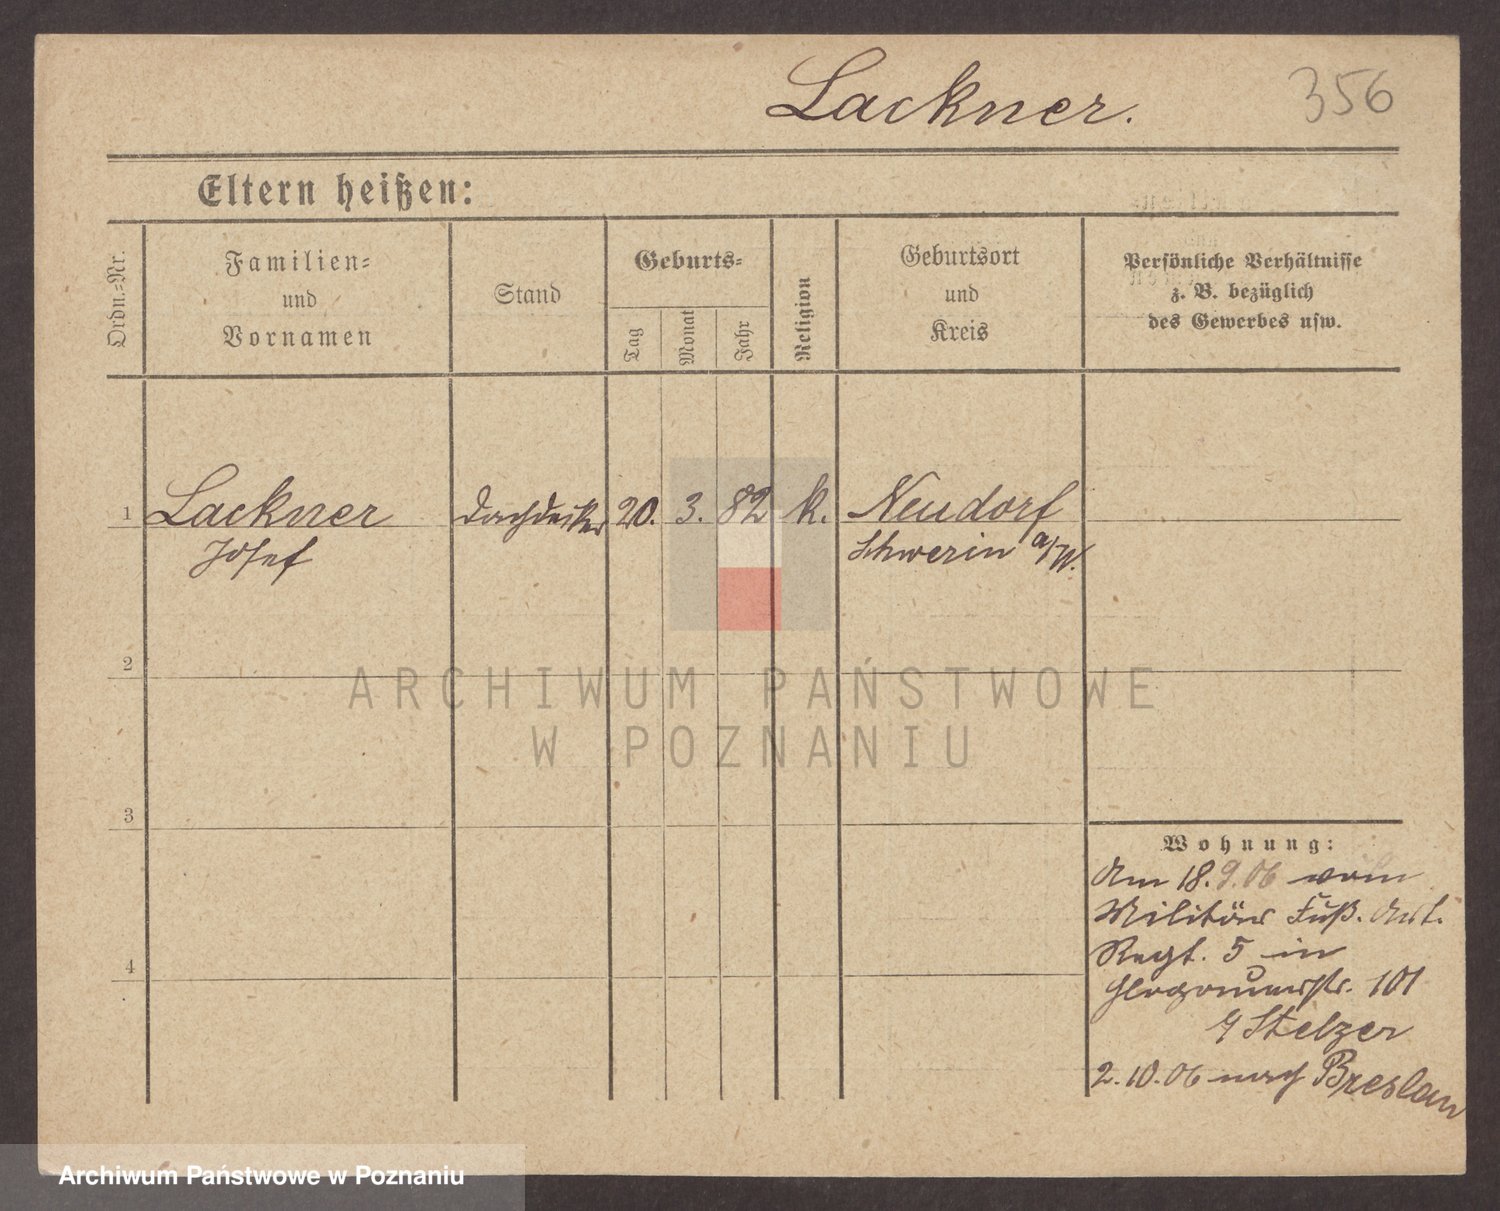 Lackner.
356
Eltern heißen:
Ordn.-Nr.
Familien-
und
Vornamen
Stand
Geburts-
Tag
Monat
Jahr
Religion
Geburtsort
und
Kreis
Persönliche Verhältnisse
z. B. bezüglich
des Gewerbes usw.
1 Lackner Dachdecker 20. 3. 82 k. Neudorf
Josef Schwerin a/W.
2
ARCHIWUM PAŃSTWOWE
W POZNANIU
3
Wohnung:
Am 18.9.06 vom
Militär Fuß. Art.
Regt. 5 in
4
Glogauerstr. 101
Stelzer
2.10.06 nach Breslau
Archiwum Państwowe w Poznaniu